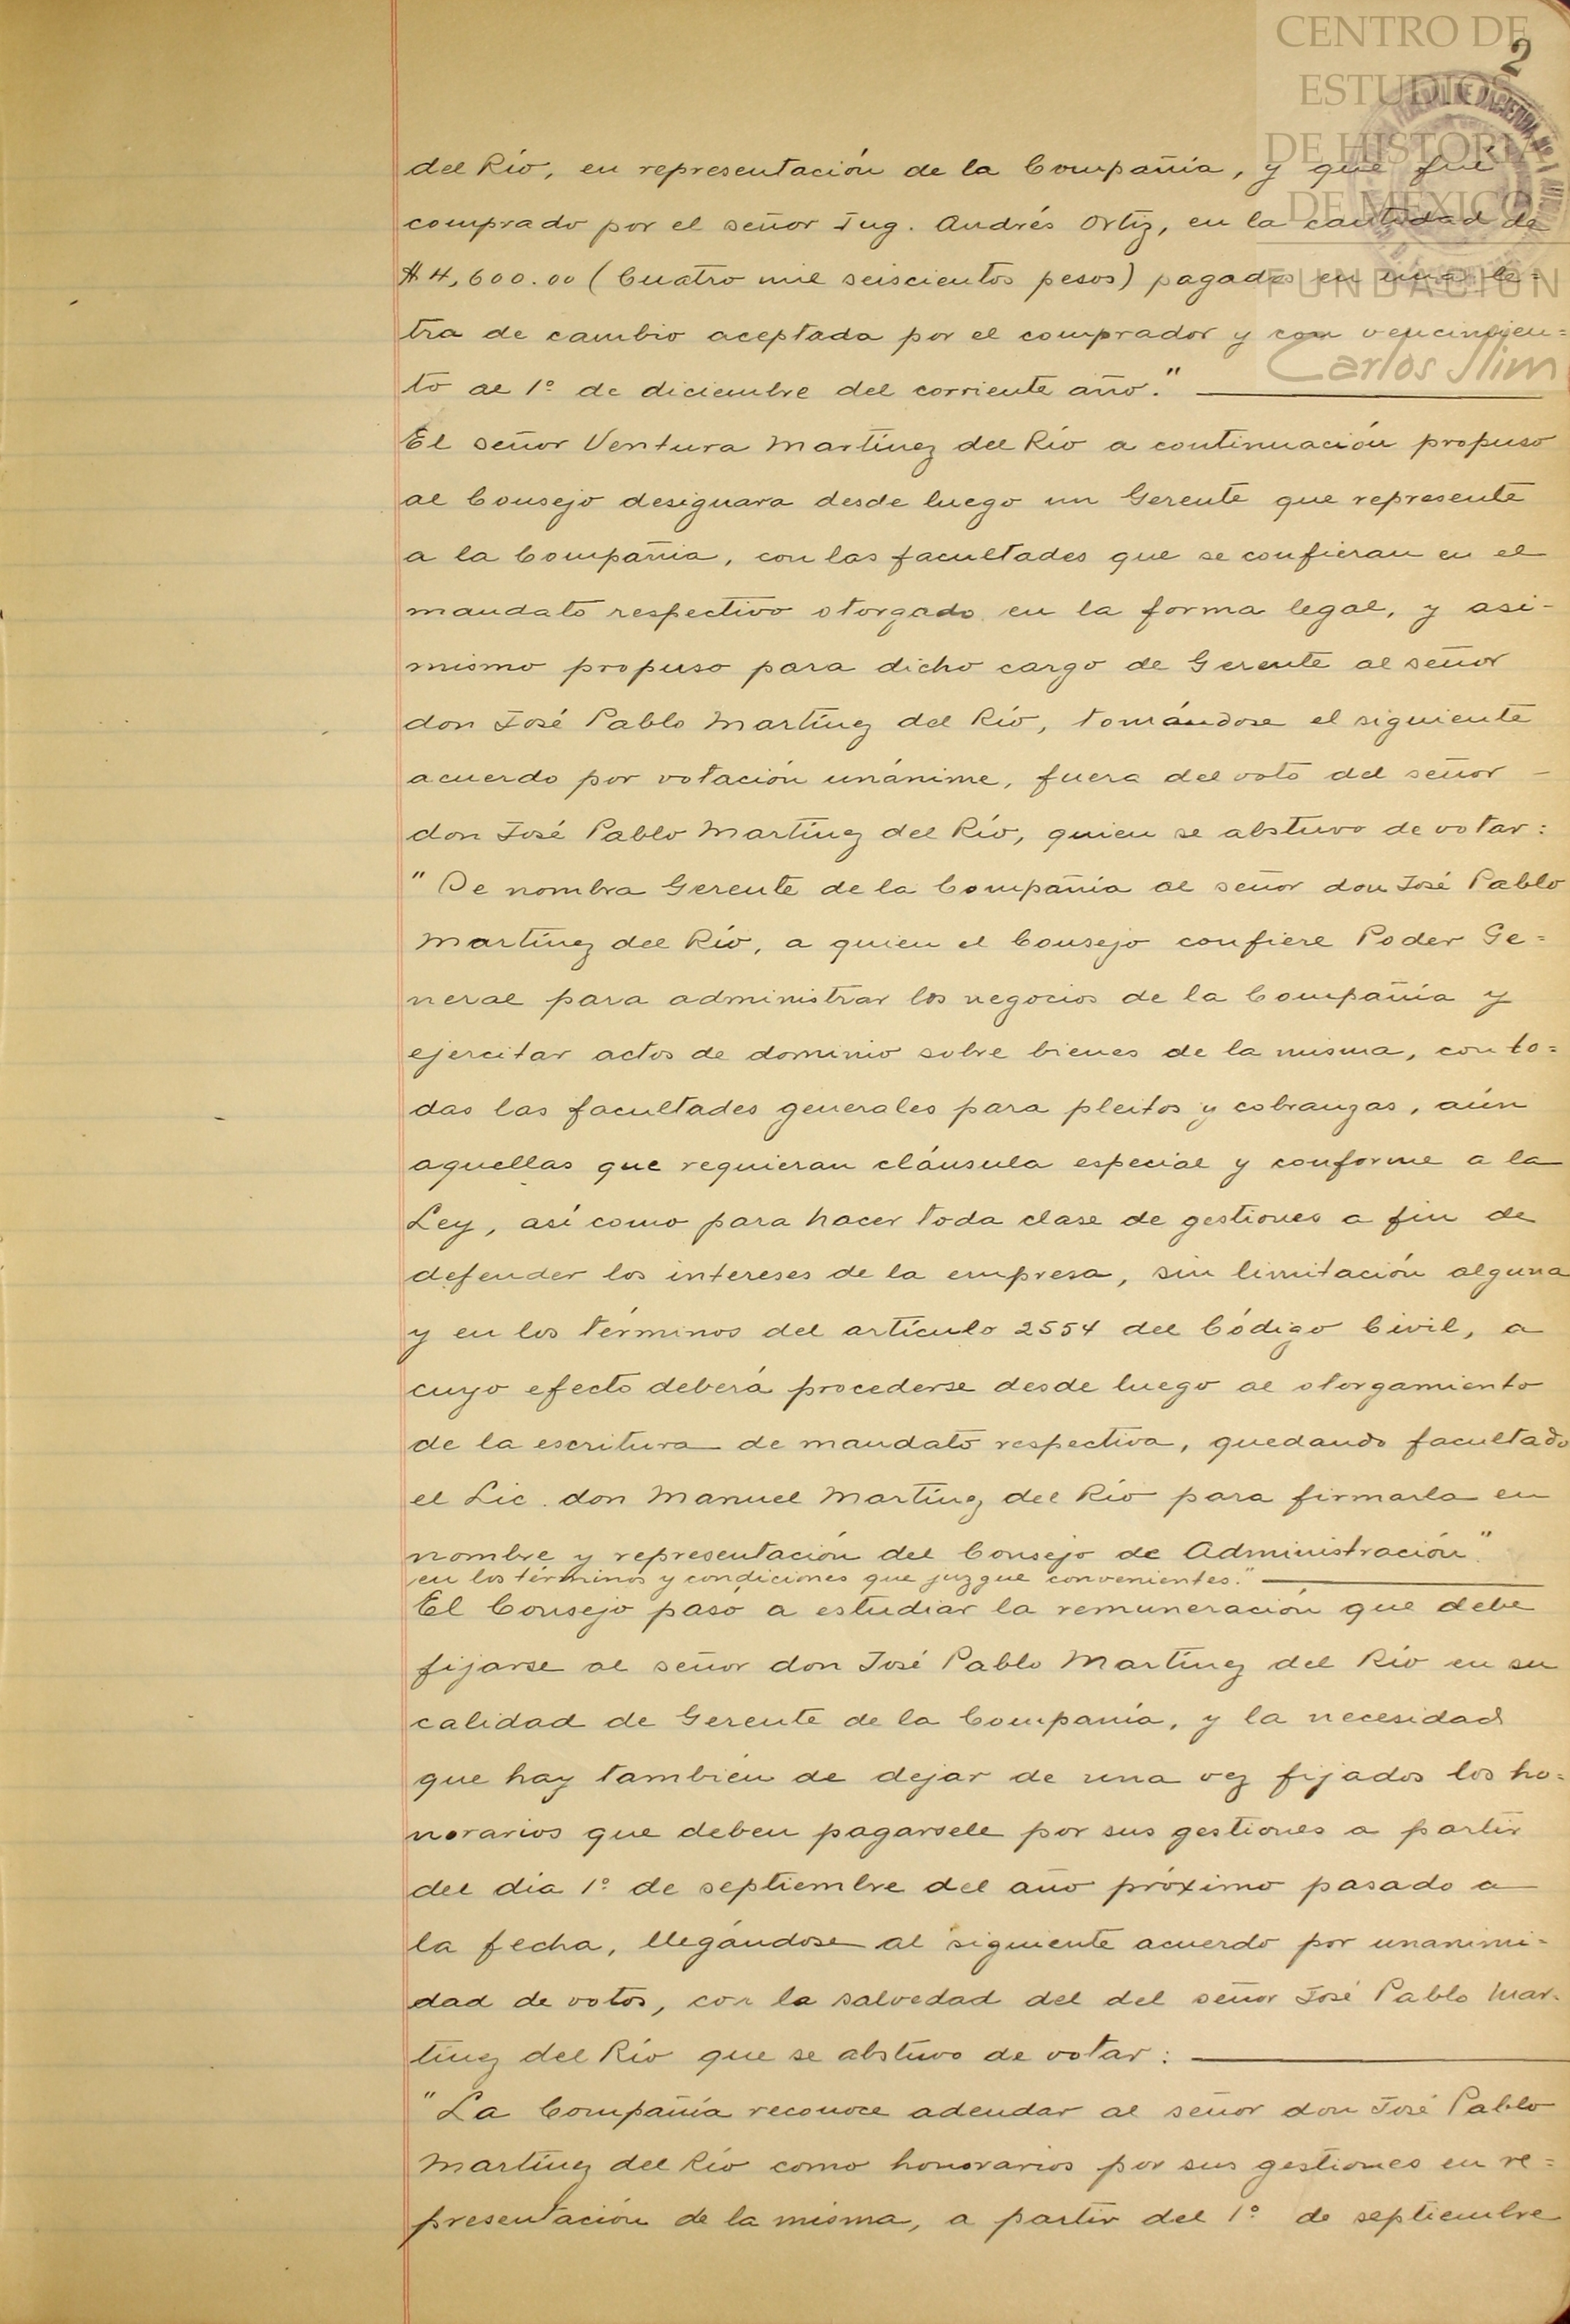 CENTRO DE
ESTUDIOS
DE HISTORIA
DE MEXICO
FUNDACIÓN
Carlos Slim
2
del Río, en representación de la Compañía, y que fué
comprado por el señor Ing. Andrés Ortiz, en la cantidad de
$4,600.00 (Cuatro mil seiscientos pesos) pagados en una le=
tra de cambio aceptada por el comprador y con vencimien=
to al 1º de diciembre del corriente año."
El señor Ventura Martínez del Río a continuación propuso
al Consejo designara desde luego un Gerente que represente
a la Compañía, con las facultades que se confieran en el
mandato respectivo otorgado en la forma legal, y asi-
mismo propuso para dicho cargo de Gerente al señor
don José Pablo Martínez del Río, tomándose el siguiente
acuerdo por votación unánime, fuera del voto del señor -
don José Pablo Martínez del Río, quien se abstuvo de votar:
"Se nombra Gerente de la Compañía al señor don José Pablo
Martínez del Río, a quien el Consejo confiere Poder Ge=
neral para administrar los negocios de la Compañía y
ejercitar actos de dominio sobre bienes de la misma, con to=
das las facultades generales para pleitos y cobranzas, aún
aquellas que requieran cláusula especial y conforme a la
Ley, así como para hacer toda clase de gestiones a fin de
defender los intereses de la empresa, sin limitación alguna
y en los términos del artículo 2554 del Código Civil, a
cuyo efecto deberá procederse desde luego al otorgamiento
de la escritura de mandato respectiva, quedando facultado
el Lic. don Manuel Martínez del Río para firmarla en
nombre y representación del Consejo de Administración"
en los términos y condiciones que juzgue convenientes."
El Consejo pasó a estudiar la remuneración que debe
fijarse al señor don José Pablo Martínez del Río en su
calidad de Gerente de la Compañía, y la necesidad
que hay también de dejar de una vez fijados los ho=
norarios que deben pagarsele por sus gestiones a partir
del día 1º de septiembre del año próximo pasado a
la fecha, llegándose al siguiente acuerdo por unanimi-
dad de votos, con la salvedad del del señor José Pablo Mar-
tínez del Río que se abstuvo de votar:
"La Compañía reconoce adeudar al señor don José Pablo
Martínez del Río como honorarios por sus gestiones en re=
presentación de la misma, a partir del 1º de septiembre